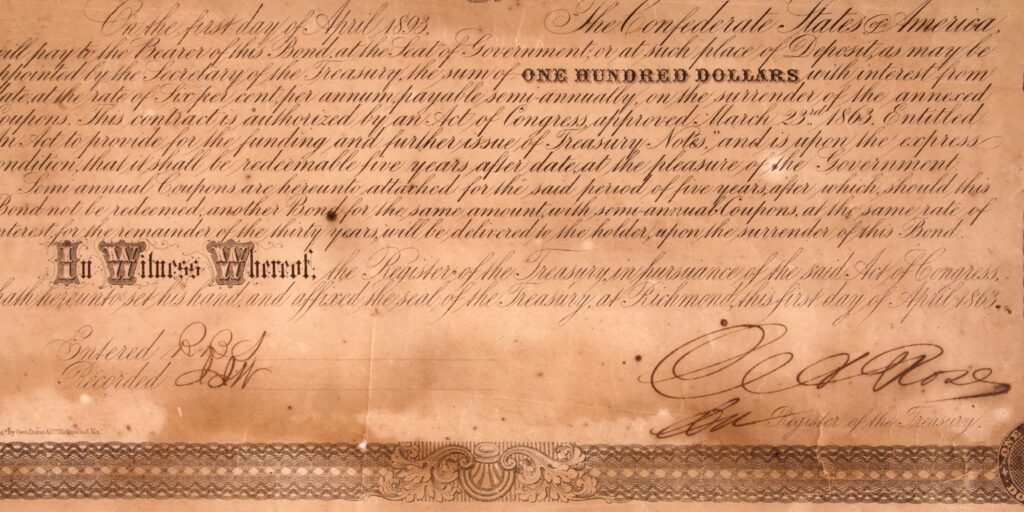 On the first day of April 1893. The Confederate States of America,
will pay to the Bearer of this Bond, at the Seat of Government, or at such place of Deposit, as may be
appointed by the Secretary of the Treasury, the sum of ONE HUNDRED DOLLARS with interest from
date, at the rate of Six per cent. per annum, payable semi-annually, on the surrender of the annexed
Coupons. This contract is authorized by an Act of Congress, approved March 23rd 1863. Entitled
"An Act to provide for the funding and further issue of Treasury Notes," and is upon the express
condition, that it shall be redeemable five years after date, at the pleasure of the Government.
Semi annual Coupons are hereunto attached for the said period of five years, after which, should this
Bond not be redeemed, another Bond for the same amount, with semi-annual Coupons, at the same rate of
interest, for the remainder of the thirty years, will be delivered to the holder, upon the surrender of this Bond.
In Witness Whereof, the Register of the Treasury, in pursuance of the said Act of Congress,
hath hereunto set his hand, and affixed the seal of the Treasury, at Richmond, this first day of April 1863.
Entered
Recorded
Rose
Register of the Treasury.
Richmond, Va.